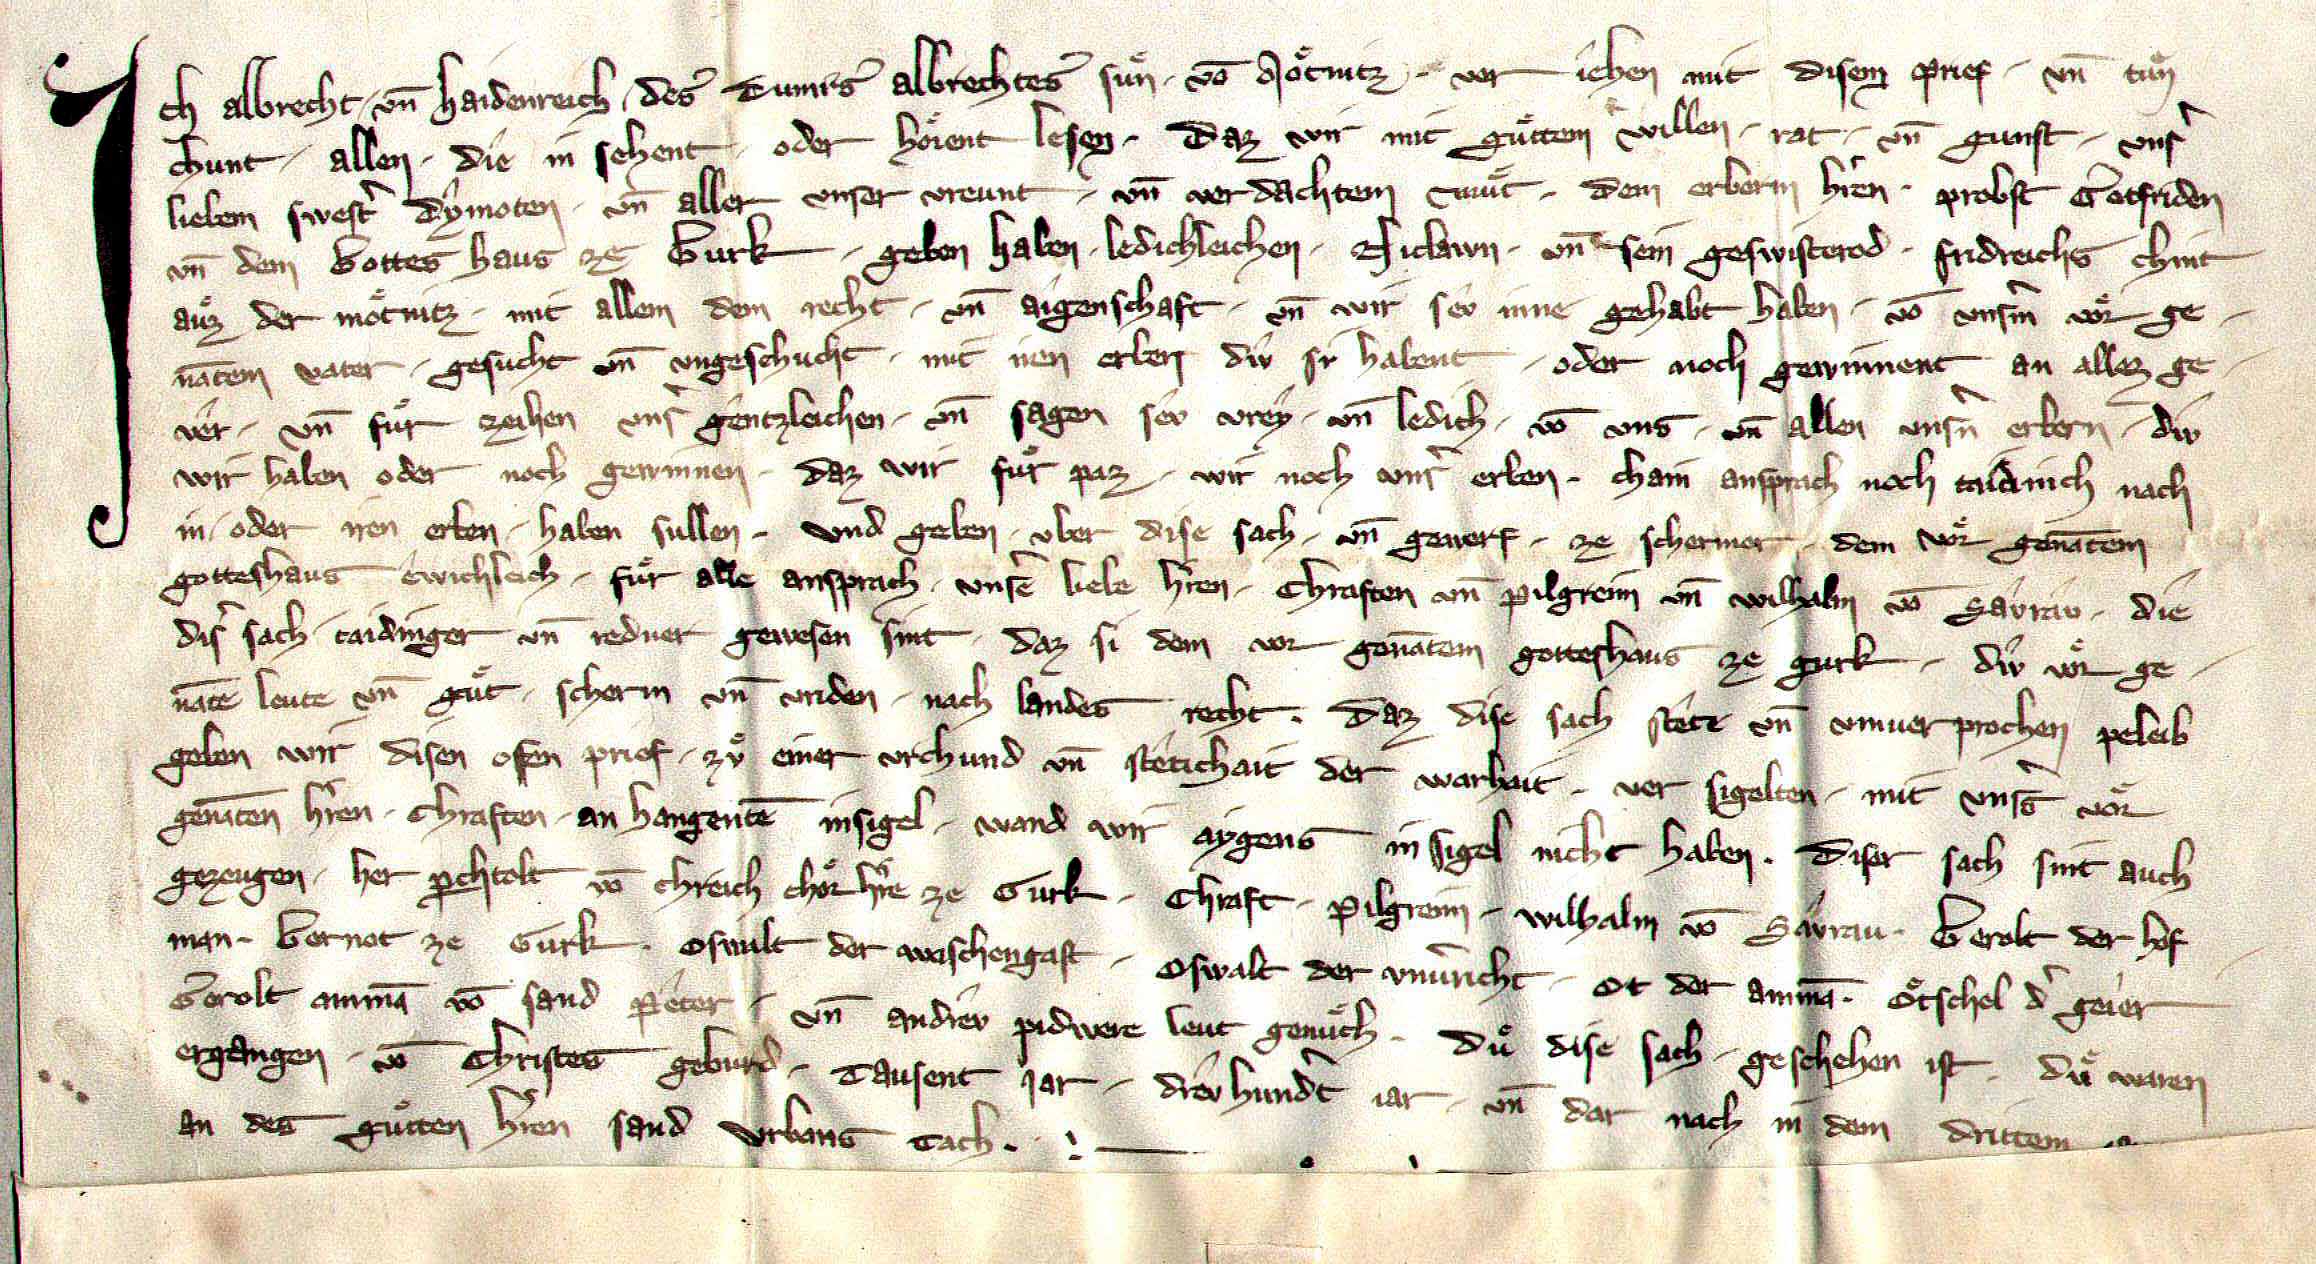 Ich albrecht · vn̄ haidenreich · des Tumrs albrechtes suͦn · vō Moͤtnitz · ver iehen mit disem prief · vn̄ tuͦn
chunt · allen · die in sehent · oder hoͤrent lesen · Daz wir mit guͦttem willen · rat · vn̄ gunst · vnsr̾
liebem swest̾ dŷmoten · vn̄ aller vnser vreunt · vn̄ ver dachtem muͦt · dem erberm hr̾en · probst Gotfriden
vn̄ dem Gottes haus ze Gurk · geben haben · ledichleichen · Niclawn · vn̄ sein geswistreod · fridreichs chint
auͤz der moͤtnitz · mit allem dem recht · vn̄ aigenschaft · vn̄ wir sev inne gehabt haben · vō vnsm̾ voͤr ge
nātem vater · gesucht vn̄ vngeschucht · mit iren erben div si habent · oder noch gewinnent an allez ge
ver · vn̄ fuͤr zeihen vns̾ gentzleichen · vn̄ sagen sev vrey · vn̄ ledich · vō vns · vn̄ allen vnsn̾ erbern · div
wir haben oder noch gewinnen · daz wir fuͤr paz · wir noch vnsr̾ erben · chain ansprach noch taidinch nach
in · oder iren erben · haben sullen · vnd geben · vber dise sach · vn̄ gewerf · ze schermer · dem voͤr genātem
gotteshaus ewichleich · fuͤr alle ansprach · vnsē liebe hr̾en · Chraften vn̄ pilgreim vn̄ wilhalm vō Savrav · die
dis̾ sach taidinger vn̄ redner gewesen sint · daz si dem vor genātem gotteshaus ze gurk · div voͤr ge
nātē leute vn̄ guͤt · scherm vn̄ vriden · nach landes recht · Daz dise sach stete vn̄ vnuerprochen peleib
geben wir disen ofen prief · zvͦ einer vrchund vn̄ stetichait der warhait · ver sigelten · mit vnsr̾s voͤr
genāten hr̾en · Chraften · an hangentē insigel · wand wir aygens in sigel nicht haben · Diser sach sint auch
gezeugen · her p̱chtolt vō chreich choͤrhr̾re ze Gurk · Chraft · pilgreim · wilhalm vō Savrau · Gerolt der hof
man · Gernot ze Gurk · Oswalt der waschengast · Oswalt der vnur̾richt · Ot der ammā · oͤtschel d̾ geier
Gerolt ammā vō sand Peter · vn̄ andrev pidwere leut genuͦch · Duͦ dise sach · geschehen ist · Duͦ waren
ergangen · vō Christes geburd · Tausent Jar · drev hundr̾t iar · vn̄ dar nach in dem drittem
an des guͦtten hr̾en sand vrbans Tach ·